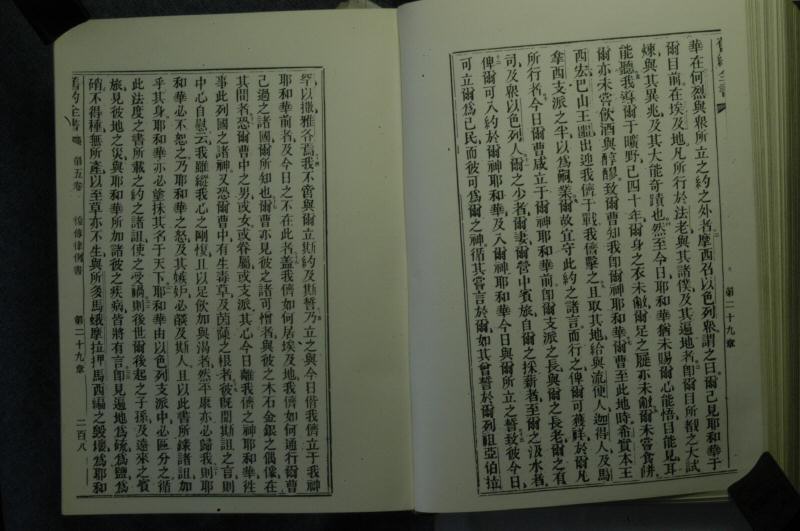 舊約全書
第二十九章
華在何烈與衆所立之約之外者摩西召以色列衆謂之曰爾已見耶和華于
爾目前在埃及地凡所行於法老與其諸僕及其遍地者卽爾目所覩之大試
煉與其異兆及其大能奇蹟也然至今日耶和華猶未賜爾心能悟目能見耳
能聽我導爾于曠野已四十年爾身之衣未敝爾足之履亦未敝爾未嘗食餅
爾亦未嘗飲酒與醇醪致爾曹知我卽爾神耶和華爾曹至此地時希實本王
西宏巴山王噩出迎我儕于戰我儕擊之且取其地給與流便人迦得人及馬
拿西支派之半以爲嗣業爾故宜守此約之諸言而行之俾爾可獲祥於爾凡
所行者今日爾曹咸立于爾神耶和華前卽爾支派之長與爾之長老爾之有
司及衆以色列人爾之少者爾妻爾營中賓旅自爾之採薪者至爾之汲水者
俾爾可入約於爾神耶和華及入爾神耶和華今日與爾所立之誓致彼今日
可立爾爲己民而彼可爲爾之神循其嘗言於爾如其曾誓於爾列祖亞伯拉
罕以撒雅各焉我不啻與爾立斯約及斯誓乃立之與今日偕我儕立于我神
耶和華前者及今日之不在此者蓋我儕如何居埃及地我儕如何通行爾曹
已過之諸國爾所知也爾曹亦見彼之諸可憎者與彼之木石金銀之偶像在
其間者恐爾曹中之男或女或眷屬或支派其心今日離我儕之神耶和華徃
事此列國之諸神又恐爾曹中有生毒草及茵蔯之根者彼旣聞斯詛之言則
中心自慰云我雖縱我心之剛愎且以足飲加與渴者然平康亦必歸我則耶
和華必不恕之乃耶和華之怒及其嫉妒必燄及斯人且以此書所錄諸詛加
乎其身耶和華亦必塗抹其名于天下耶和華由以色列支派中必區分之循
此法度之書所載之約之諸詛使之受禍則後世爾後起之子孫及遠來之賓
旅見彼地之災與耶和華所加諸彼之疾病皆將有言卽見遍地爲硫爲鹽爲
磽不得種無所產以至草亦不生與所多馬蛾摩拉押馬西編之毀壞爲耶和
舊約全書
第五卷
復傳律例書
第二十九章
二百八